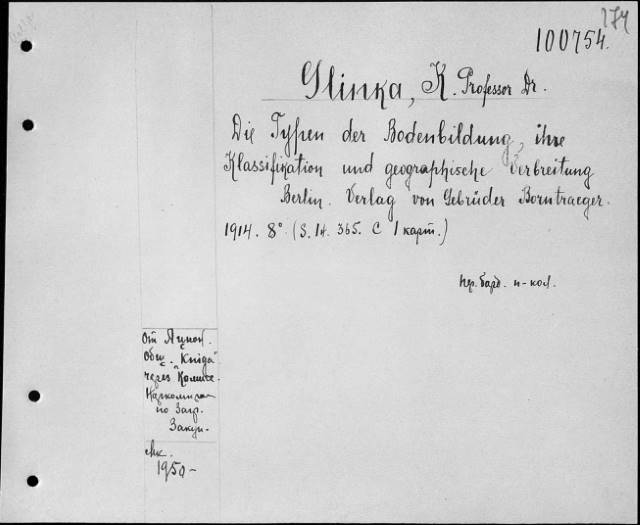 274
100754.
Glinka, K. Professor Dr.
Die Typen der Bodenbildung, ihre
Klassifikation und geographische Verbreitung
Berlin. Verlag von Gebrüder Borntraeger.
1914. 8° (S. 14. 365. С 1 карт.)
От Акцион.
Общ. "Kniga"
через Комис.
по Загр.
Закуп.
Мк.
1950-